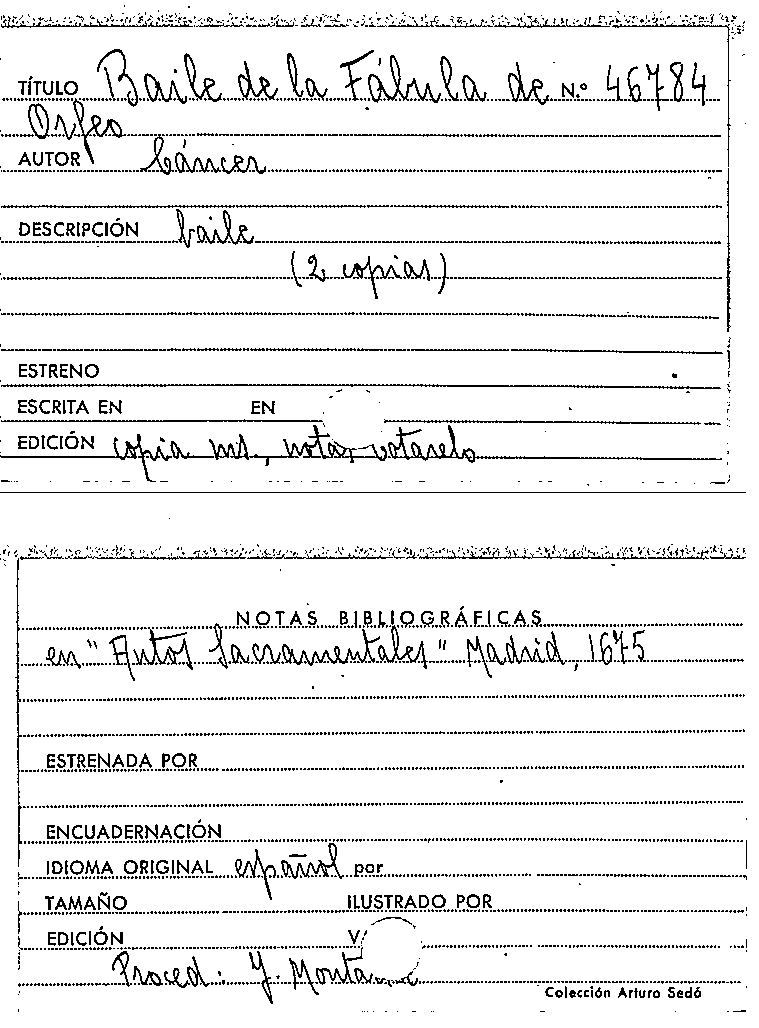 TÍTULO Baile de la Fábula de N.º 46784
Orfeo
AUTOR Cáncer
DESCRIPCIÓN baile
(2 copias)
ESTRENO
ESCRITA EN EN
EDICIÓN copia ms., notas
NOTAS BIBLIOGRÁFICAS
en "Autos Sacramentales" Madrid, 1675
ESTRENADA POR
ENCUADERNACIÓN
IDIOMA ORIGINAL español por
TAMAÑO ILUSTRADO POR
EDICIÓN
Proced: J.
Colección Arturo Sedó